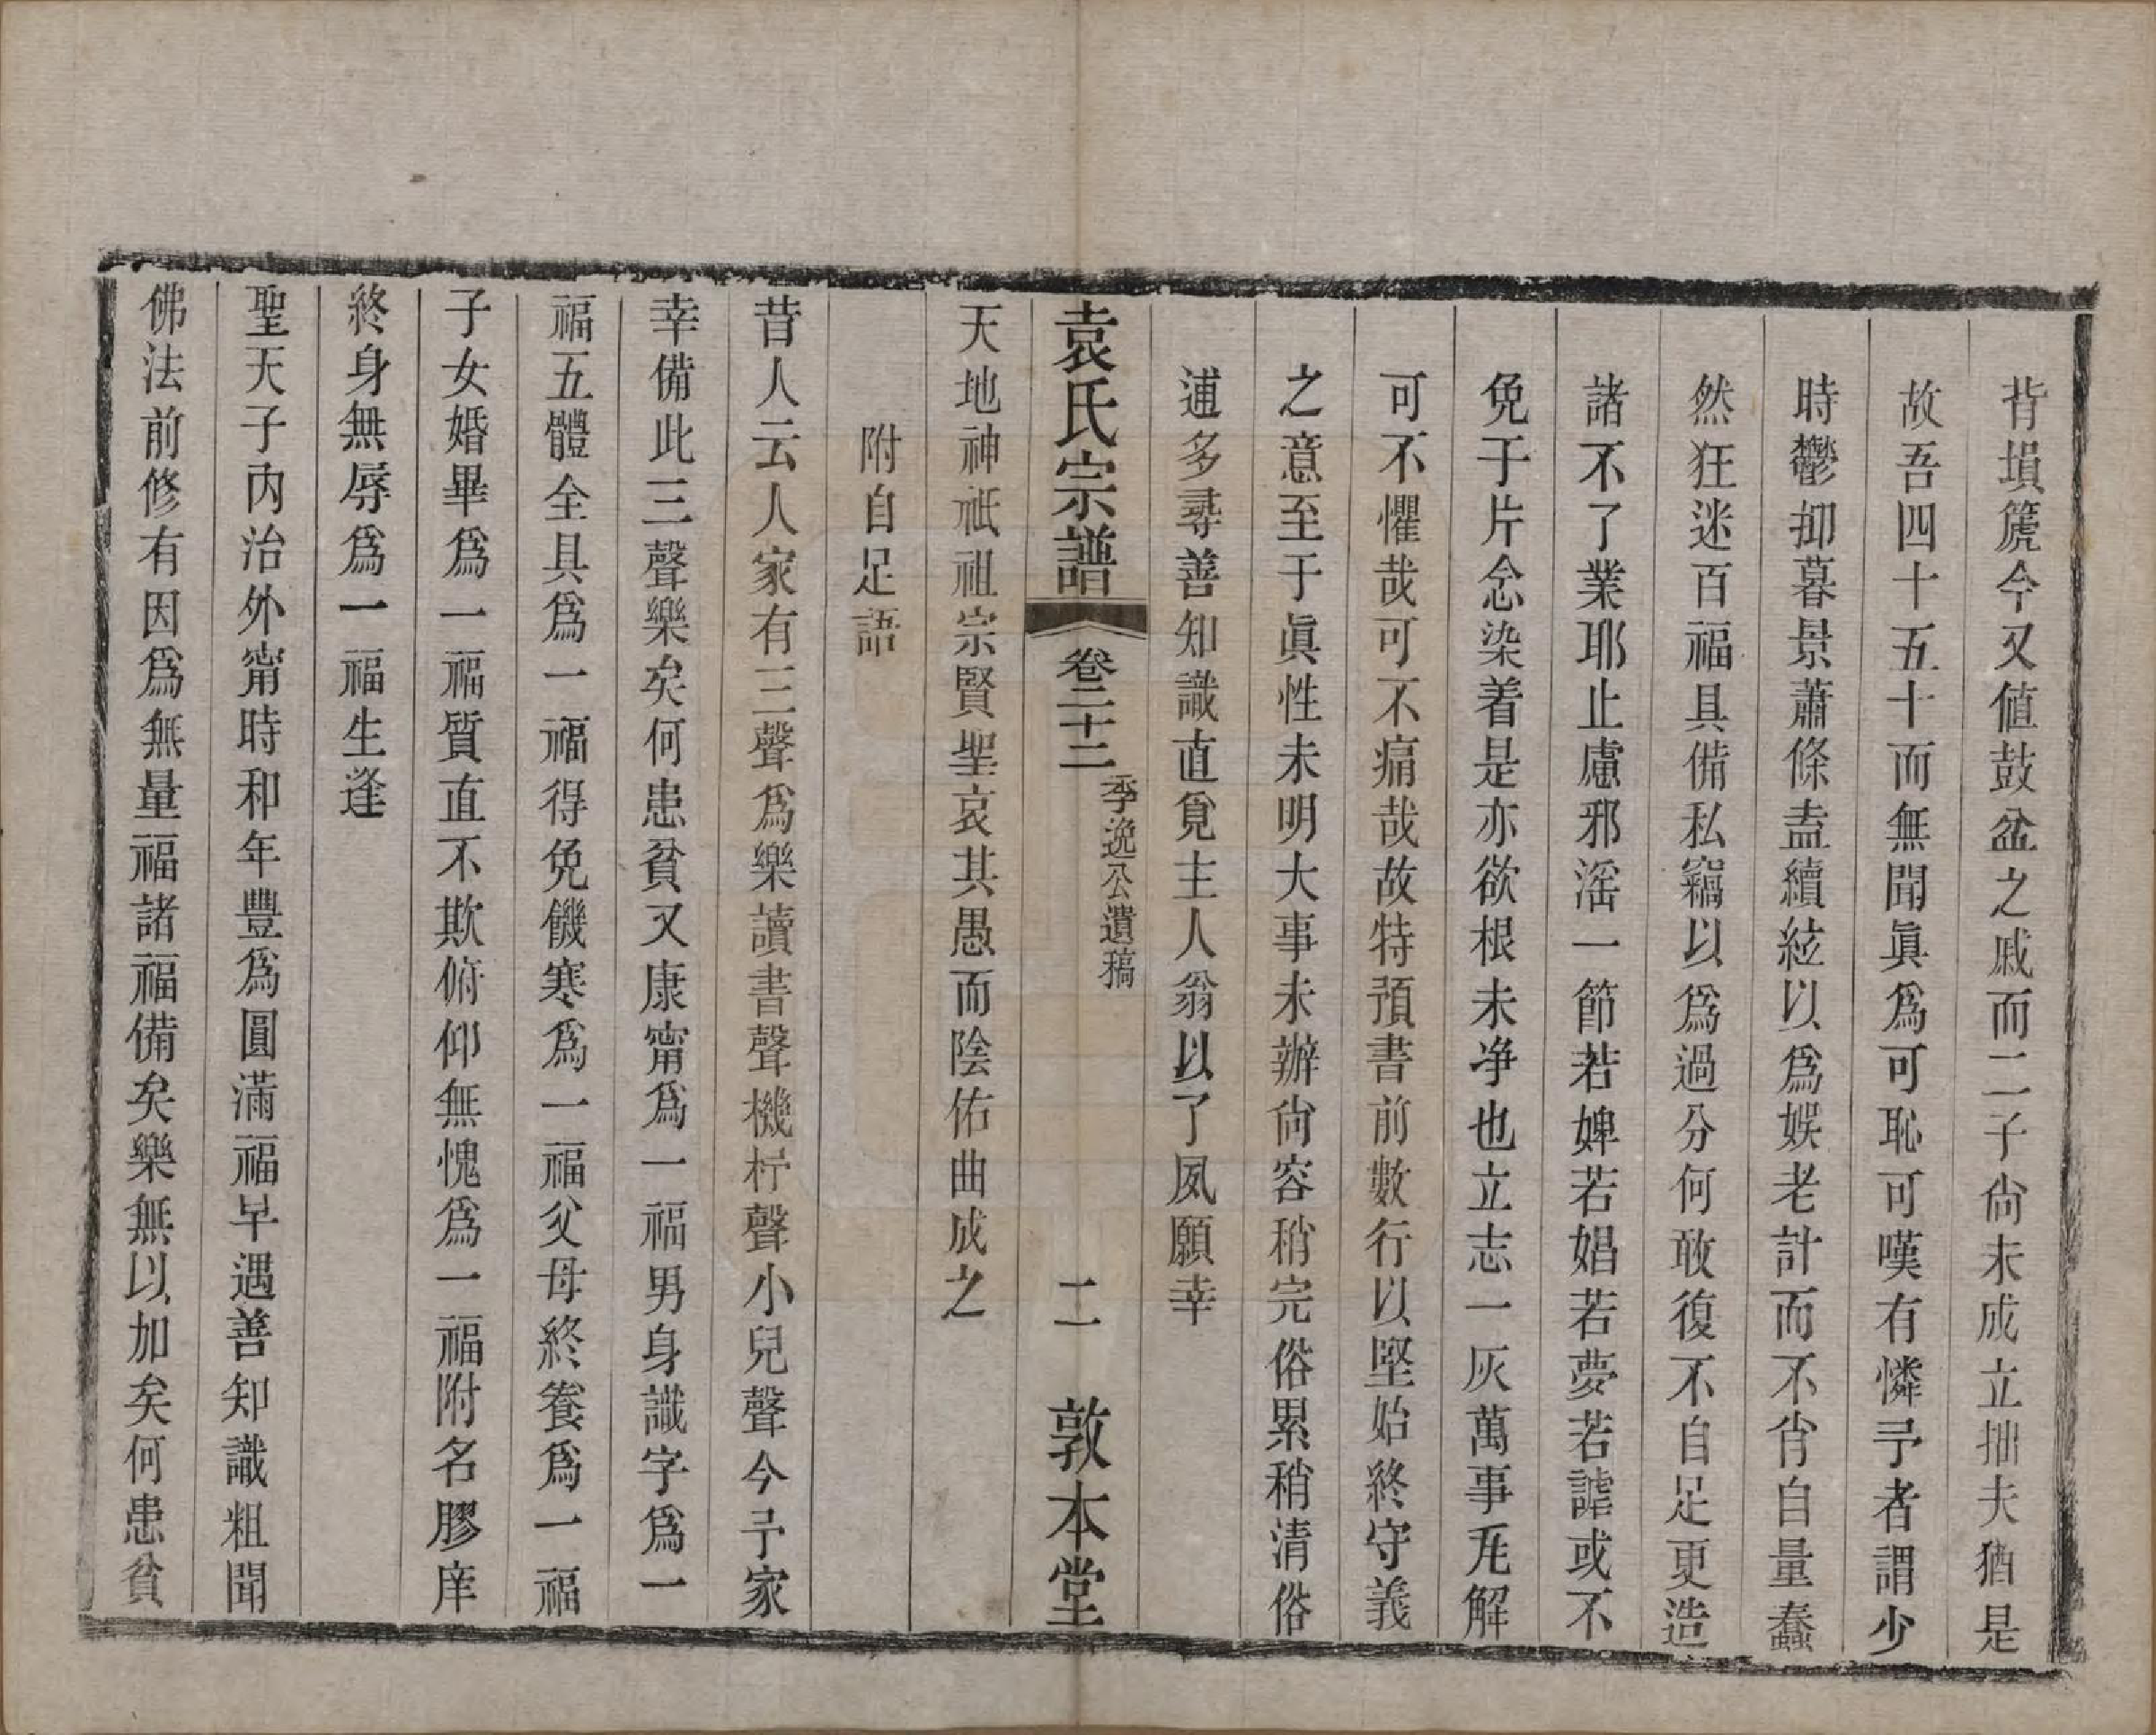 背塤篪今又値鼓盆之戚而二子尙未成立拙夫猶是
故吾四十五十而無聞眞爲可恥可嘆有憐予者謂少
時鬱抑暮景蕭條盍續絃以爲娯老計而不肖自量蠢
然狂迷百福具備私竊以爲過分何敢復不自足更造
諸不了業耶止慮邪滛一節若婢若娼若夢若謔或不
免于片念染着是亦欲根未净也立志一灰萬事尾解
可不懼哉可不痛哉故特預書前數行以堅始終守義
之意至于眞性未明大事未辦尙容稍完俗累稍清俗
逋多尋善知識直覓主人翁以了夙願幸
袁氏宗譜 卷二十二 季逸公遺稿 二 敦本堂
天地神祇祖宗賢聖哀其愚而陰佑曲成之
附自足語
昔人云人家有三聲爲樂讀書聲機杼聲小兒聲今予家
幸備此三聲樂矣何患貧又康甯爲一福男身識字爲一
福五體全具爲一福得免饑寒爲一福父母終養爲一福
子女婚畢爲一福質直不欺俯仰無愧爲一福附名膠庠
終身無辱爲一福生逢
聖天子內治外甯時和年豐爲圓滿福早遇善知識粗聞
佛法前修有因爲無量福諸福備矣樂無以加矣何患貧